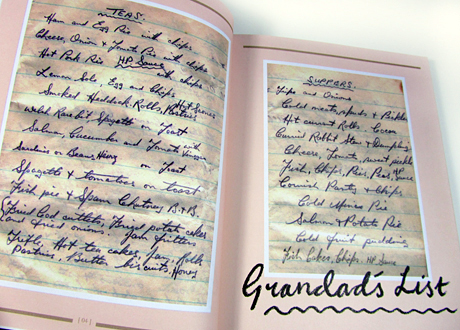 TEAS.
Ham and Egg Pie with chips
Cheese, Onion & Tomato Pie with chips
Hot Pork Pie HP Sauce with chips
Lemon Sole, Egg and Chips
Smoked Haddock Rolls, Hot Scones Pastries
Welsh Rarebit Spagetto on Toast
Salmon, Cucumber and Tomato with
Sardines or Beans, on Toast
Spagetto & tomatoes on toast
Fish pie & Spam B & B.
Fried Cod cutlets, Fried potato cakes
and fried onions, Spam fritters
Trifle, Hot tea cakes, Jam, rolls
Pastries, Butter biscuits, Honey
SUPPERS.
Tripe and Onions
Cold meats, & Pickles
Hot currant Rolls - Cocoa
Rabbit Stew & Dumplings
Cheese, Tomato, sweet pickle
Fish, Chips, Peas, HP Sauce
Cornish Pasty & Chips
Cold Pie
Salmon & Potato Pie
Cold fruit pudding
Fish Cakes, Chips. HP Sauce
Grandad's List